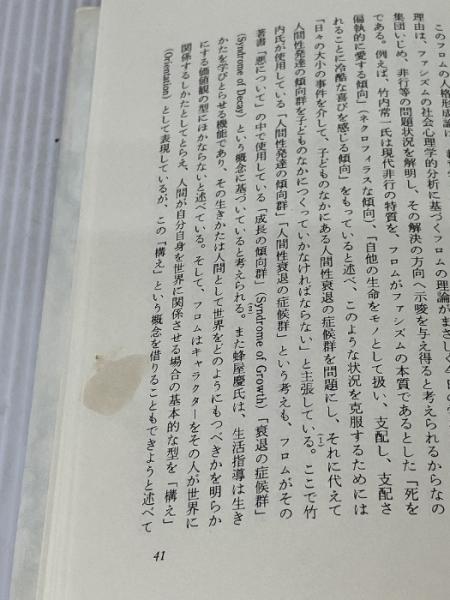 このフロムの人格形成論に
理由は、ファシズムの社会心理学的分析に基づくフロムの理論がまさしく今日の
集団いじめ、非行等の問題状況を解明し、その解決の方向へ示唆を与え得ると考えられるからなの
である。例えば、竹内常一氏は現代非行の特質を、フロムがファシズムの本質であるとした「死を
偏執的に愛する傾向」(ネクロフィラスな傾向)、「自他の生命をモノとして扱い、支配し、支配さ
れることに冷酷な喜びを感じる傾向」をもっていると述べ、このような状況を克服するためには
「日々の大小の事件を介して、子どものなかにある人間性衰退の症候群を問題にし、それに代えて
人間性発達の傾向群を子どものなかにつくっていかなければならない」と主張している。ここで竹
内氏が使用している「人間性発達の傾向群」「人間性衰退の症候群」という考えも、フロムがその
著書『悪について』の中で使用している「成長の傾向群」(Syndrome of Growth)「衰退の症候群」
(Syndrome of Decay) という概念に基づいていると考えられる。また蜂屋慶氏は、生活指導は生き
かたを学びとらせる機能であり、その生きかたは人間として世界をどのようにもつべきかを明らか
にする価値観の型にほかならないと述べている。そして、フロムはキャラクターをその人が世界に
関係するしかたとしてとらえ、人間が自分自身を世界に関係させる場合の基本的な型を「構え」
(Orientation) として表現しているが、この「構え」という概念を借りることもできようと述べて
41